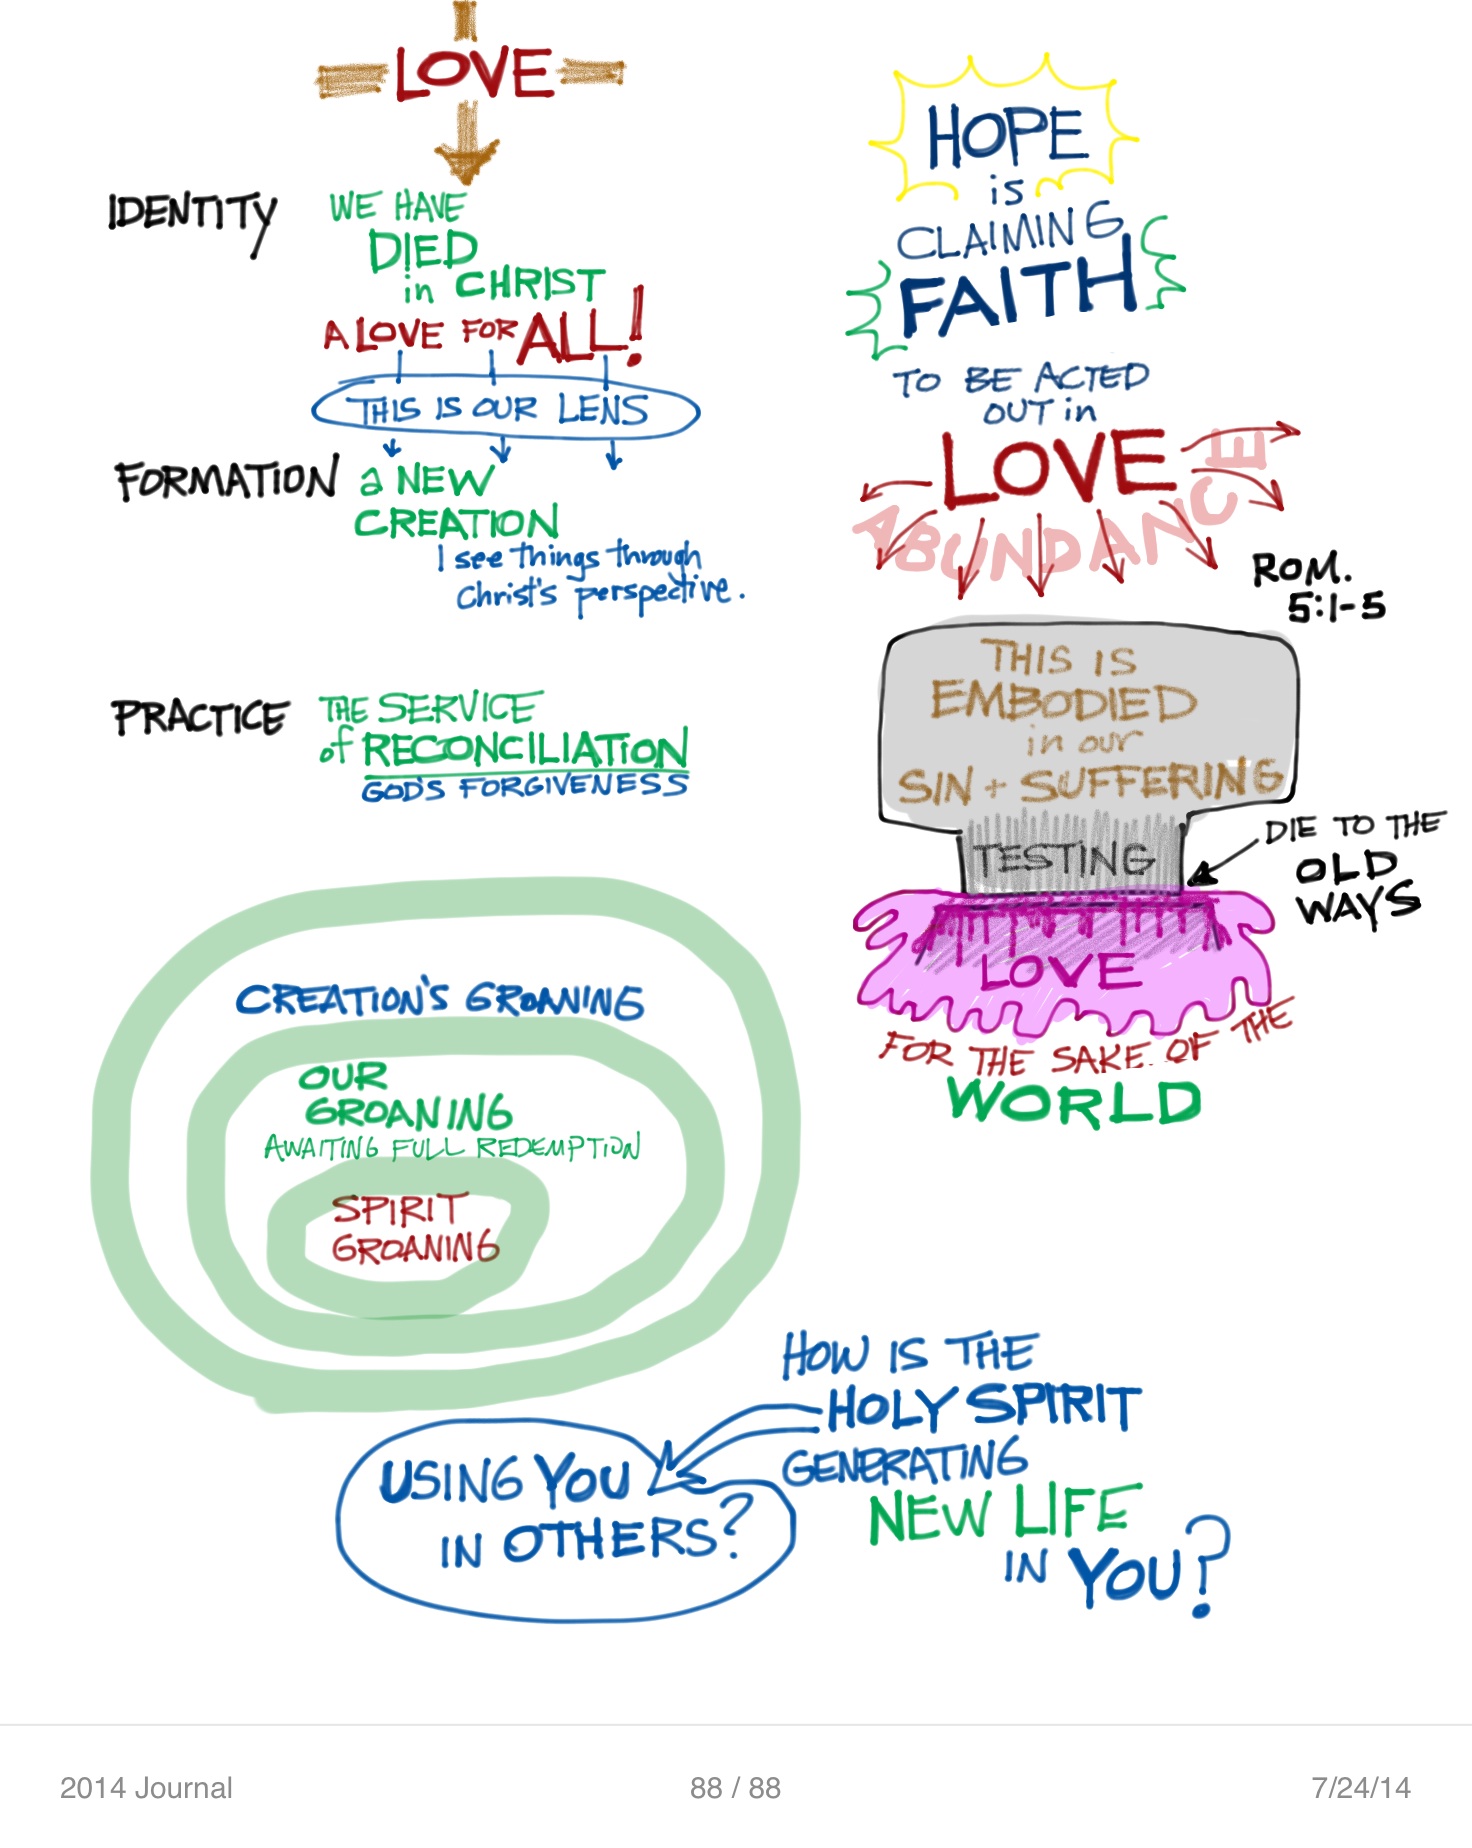 LOVE
IDENTITY
WE HAVE
DIED
in CHRIST
A LOVE FOR ALL!
THIS IS OUR LENS
FORMATION
a NEW
CREATION
I see things through
Christ's perspective.
PRACTICE
THE SERVICE
of RECONCILIATION
GOD'S FORGIVENESS
HOPE
is
CLAIMING
FAITH
TO BE ACTED
OUT in
LOVE
ABUNDANCE
ROM.
5:1-5
THIS IS
EMBODIED
in our
SIN + SUFFERING
TESTING
DIE TO THE
OLD
WAYS
LOVE
FOR THE SAKE OF THE
WORLD
CREATION'S GROANING
OUR
GROANING
AWAITING FULL REDEMPTION
SPIRIT
GROANING
HOW IS THE
HOLY SPIRIT
GENERATING
NEW LIFE
IN YOU?
USING YOU
IN OTHERS?
2014 Journal
88 / 88
7/24/14